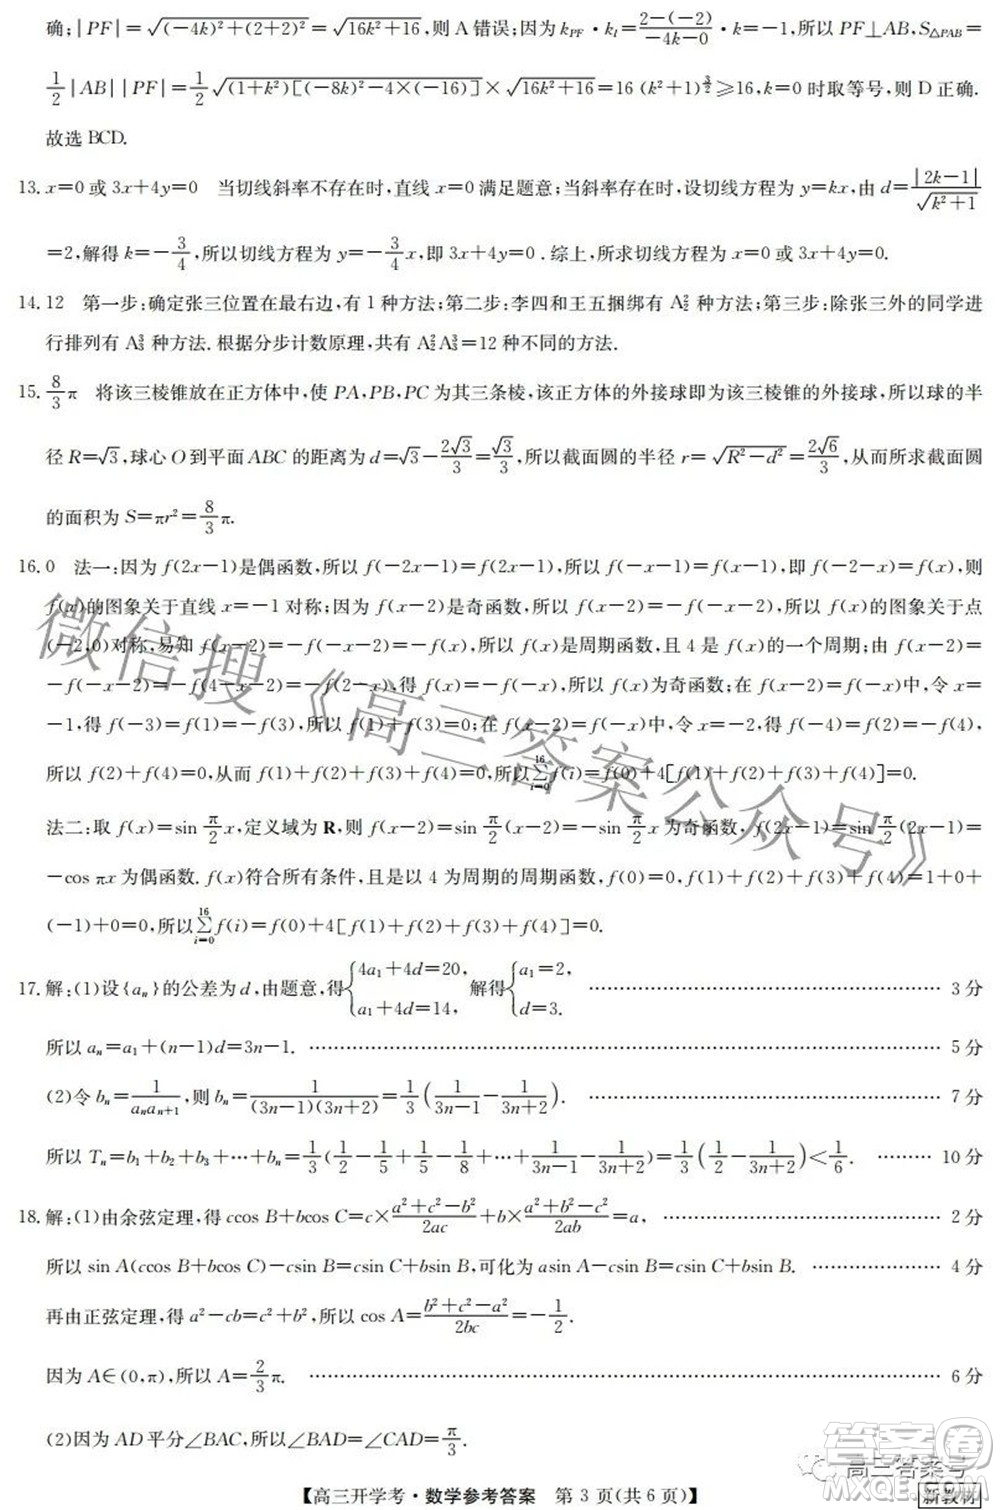 确;|PF|=√((-4k)²+(2+2)²)=√(16k²+16),则 A 错误;因为 k_PF·k_l=(2-(-2))/(-4k-0)·k=-1,所以 PF⊥AB,S△PAB=
1/2|AB||PF|=1/2√((1+k²)[(-8k)²-4×(-16)])×√(16k²+16)=16(k²+1)^(3/2)≥16,k=0 时取等号,则 D 正确.
故选 BCD.
13.x=0 或 3x+4y=0 当切线斜率不存在时,直线 x=0 满足题意;当斜率存在时,设切线方程为 y=kx,由 d=|2k-1|/√(k²+1)
=2,解得 k=-3/4,所以切线方程为 y=-3/4x,即 3x+4y=0.综上,所求切线方程为 x=0 或 3x+4y=0.
14.12 第一步:确定张三位置在最右边,有 1 种方法;第二步:李四和王五捆绑有 A₂² 种方法;第三步:除张三外的同学进
行排列有 A₃³ 种方法.根据分步计数原理,共有 A₂²A₃³=12 种不同的方法.
15.8/3π 将该三棱锥放在正方体中,使 PA,PB,PC 为其三条棱,该正方体的外接球即为该三棱锥的外接球,所以球的半
径 R=√3,球心 O 到平面 ABC 的距离为 d=√3-2√3/3=√3/3,所以截面圆的半径 r=√(R²-d²)=2√6/3,从而所求截面圆
的面积为 S=πr²=8/3π.
16.0 法一:因为 f(2x-1)是偶函数,所以 f(-2x-1)=f(2x-1),所以 f(-x-1)=f(x-1),即 f(-2-x)=f(x),则
f(x)的图象关于直线 x=-1 对称;因为 f(x-2)是奇函数,所以 f(x-2)=-f(-x-2),所以 f(x)的图象关于点
(-2,0)对称,易知 f(x-2)=-f(-x-2)=-f(x),所以 f(x)是周期函数,且 4 是 f(x)的一个周期;由 f(x-2)=
-f(-x-2)=-f(4-x-2)=-f(2-x),得 f(x)=-f(-x),所以 f(x)为奇函数;在 f(x-2)=f(-x)中,令 x=
-1,得 f(-3)=f(1)=-f(3),所以 f(1)+f(3)=0;在 f(x-2)=f(-x)中,令 x=-2,得 f(-4)=f(2)=-f(4),
所以 f(2)+f(4)=0,从而 f(1)+f(2)+f(3)+f(4)=0,所以∑(i=0→16)f(i)=f(0)+4[f(1)+f(2)+f(3)+f(4)]=0.
法二:取 f(x)=sin π/2 x,定义域为 R,则 f(x-2)=sin π/2(x-2)=-sin π/2 x 为奇函数,f(2x-1)=sin π/2(2x-1)=
-cos πx 为偶函数.f(x)符合所有条件,且是以 4 为周期的周期函数,f(0)=0,f(1)+f(2)+f(3)+f(4)=1+0+
(-1)+0=0,所以∑(i=0→16)f(i)=f(0)+4[f(1)+f(2)+f(3)+f(4)]=0.
17.解:(1)设{aₙ}的公差为 d,由题意,得{4a₁+4d=20, a₁+4d=14, 解得{a₁=2, d=3. …… 3 分
所以 aₙ=a₁+(n-1)d=3n-1. …… 5 分
(2)令 bₙ=1/(aₙaₙ₊₁),则 bₙ=1/((3n-1)(3n+2))=1/3(1/(3n-1)-1/(3n+2)). …… 7 分
所以 Tₙ=b₁+b₂+b₃+…+bₙ=1/3(1/2-1/5+1/5-1/8+…+1/(3n-1)-1/(3n+2))=1/3(1/2-1/(3n+2))<1/6. …… 10 分
18.解:(1)由余弦定理,得 ccos B+bcos C=c×(a²+c²-b²)/2ac+b×(a²+b²-c²)/2ab=a, …… 2 分
所以 sin A(ccos B+bcos C)-csin B=csin C+bsin B,可化为 asin A-csin B=csin C+bsin B. …… 4 分
再由正弦定理,得 a²-cb=c²+b²,所以 cos A=(b²+c²-a²)/2bc=-1/2.
因为 A∈(0,π),所以 A=2/3π. …… 6 分
(2)因为 AD 平分∠BAC,所以∠BAD=∠CAD=π/3.
【高三开学考·数学参考答案 第 3 页(共 6 页)】
新教材
微信搜《高三答案公众号》
高三答案号
答案圈